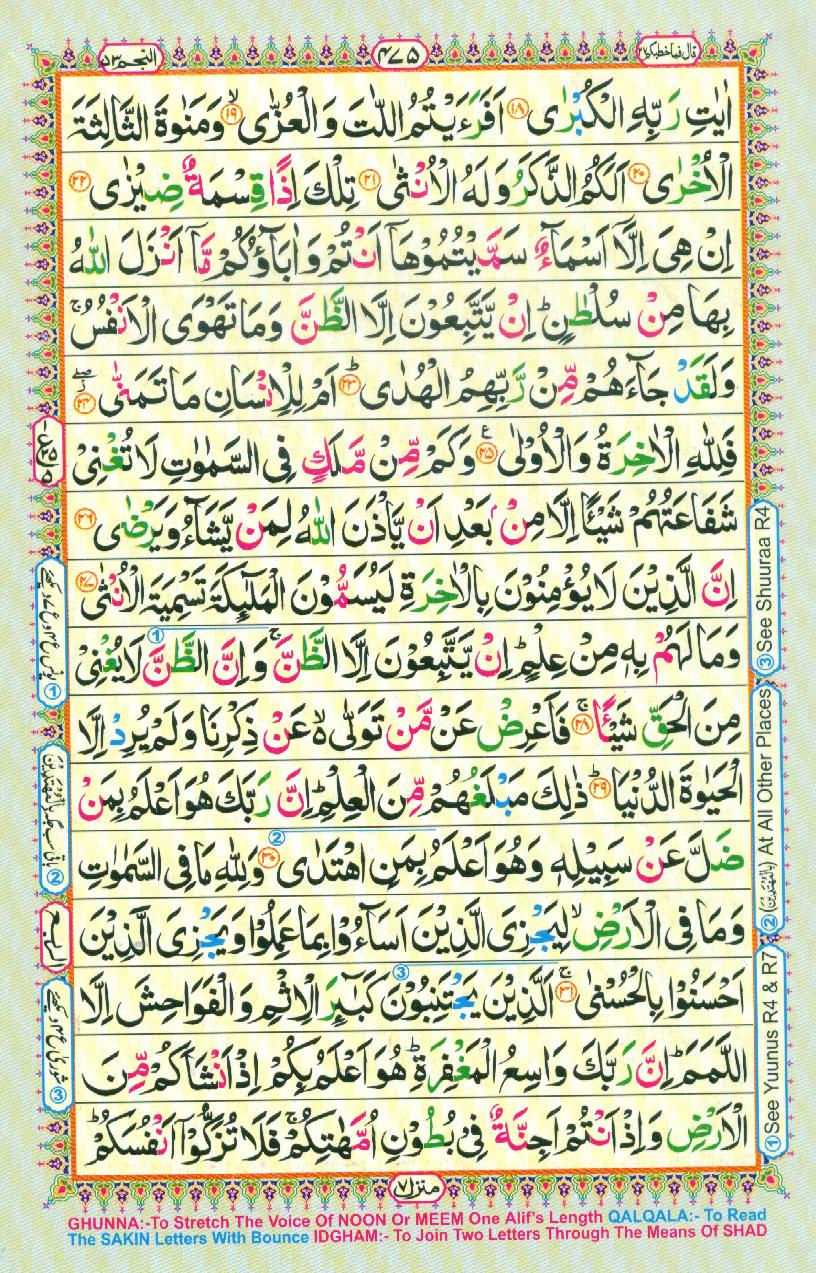 قال فما خطبكم ٢٧
٤٧٥
النجم ٥٣
اٰيٰتِ رَبِّهِ الْكُبْرٰى ۝١٨ اَفَرَءَيْتُمُ اللّٰتَ وَالْعُزّٰى ۙ۝١٩ وَمَنٰوةَ الثَّالِثَةَ
الْاُخْرٰى ۝٢٠ اَلَكُمُ الذَّكَرُ وَلَهُ الْاُنْثٰى ۝٢١ تِلْكَ اِذًا قِسْمَةٌ ضِيْزٰى ۝٢٢
اِنْ هِىَ اِلَّاۤ اَسْمَآءٌ سَمَّيْتُمُوْهَاۤ اَنْتُمْ وَاٰبَآؤُكُمْ مَّاۤ اَنْزَلَ اللّٰهُ
بِهَا مِنْ سُلْطٰنٍ ؕ اِنْ يَّتَّبِعُوْنَ اِلَّا الظَّنَّ وَمَا تَهْوَى الْاَنْفُسُ ۚ
وَلَقَدْ جَآءَهُمْ مِّنْ رَّبِّهِمُ الْهُدٰى ؕ۝٢٣ اَمْ لِلْاِنْسَانِ مَا تَمَنّٰى ۝٢٤
فَلِلّٰهِ الْاٰخِرَةُ وَالْاُوْلٰى ۝٢٥ وَكَمْ مِّنْ مَّلَكٍ فِى السَّمٰوٰتِ لَا تُغْنِىْ
شَفَاعَتُهُمْ شَيْـًٔا اِلَّا مِنْۢ بَعْدِ اَنْ يَّاْذَنَ اللّٰهُ لِمَنْ يَّشَآءُ وَيَرْضٰى ۝٢٦
اِنَّ الَّذِيْنَ لَا يُؤْمِنُوْنَ بِالْاٰخِرَةِ لَيُسَمُّوْنَ الْمَلٰٓئِكَةَ تَسْمِيَةَ الْاُنْثٰى ۝٢٧
وَمَا لَهُمْ بِهٖ مِنْ عِلْمٍ ؕ اِنْ يَّتَّبِعُوْنَ اِلَّا الظَّنَّ ۚ وَاِنَّ الظَّنَّ لَا يُغْنِىْ
مِنَ الْحَقِّ شَيْـًٔا ۚ۝٢٨ فَاَعْرِضْ عَنْ مَّنْ تَوَلّٰى ۙ عَنْ ذِكْرِنَا وَلَمْ يُرِدْ اِلَّا
الْحَيٰوةَ الدُّنْيَا ؕ۝٢٩ ذٰلِكَ مَبْلَغُهُمْ مِّنَ الْعِلْمِ ؕ اِنَّ رَبَّكَ هُوَ اَعْلَمُ بِمَنْ
ضَلَّ عَنْ سَبِيْلِهٖ وَهُوَ اَعْلَمُ بِمَنِ اهْتَدٰى ۝٣٠ وَلِلّٰهِ مَا فِى السَّمٰوٰتِ
وَمَا فِى الْاَرْضِ ۙ لِيَجْزِىَ الَّذِيْنَ اَسَآءُوْا بِمَا عَمِلُوْا وَيَجْزِىَ الَّذِيْنَ
اَحْسَنُوْا بِالْحُسْنٰى ۚ۝٣١ اَلَّذِيْنَ يَجْتَنِبُوْنَ كَبٰٓئِرَ الْاِثْمِ وَالْفَوَاحِشَ اِلَّا
اللَّمَمَ ؕ اِنَّ رَبَّكَ وَاسِعُ الْمَغْفِرَةِ ؕ هُوَ اَعْلَمُ بِكُمْ اِذْ اَنْشَاَكُمْ مِّنَ
الْاَرْضِ وَاِذْ اَنْتُمْ اَجِنَّةٌ فِىْ بُطُوْنِ اُمَّهٰتِكُمْ ۚ فَلَا تُزَكُّوْۤا اَنْفُسَكُمْ ؕ
③See Shuuraa R4
②(بِالْمُهْتَدِيْنَ) At All Other Places
①See Yuunus R4 & R7
منزل ٧
GHUNNA:-To Stretch The Voice Of NOON Or MEEM One Alif's Length QALQALA:- To Read
The SAKIN Letters With Bounce IDGHAM:- To Join Two Letters Through The Means Of SHAD